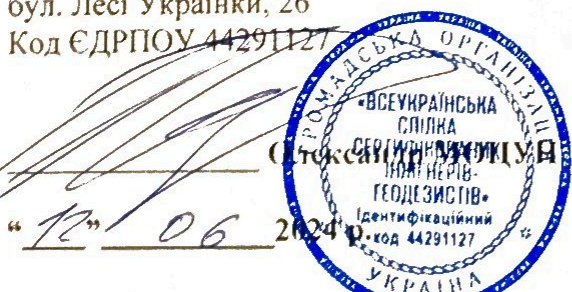 бул. Лесі Українки, 26
Код ЄДРПОУ 44291127
Олександр МОЦУЛ
“ 12 ” 06 2024 р.
ГРОМАДСЬКА ОРГАНІЗАЦІ
«ВСЕУКРАЇНСЬКА
СПІЛКА
СЕРТИФІКОВАНИХ
ІНЖЕНЕРІВ-
ГЕОДЕЗИСТІВ»
Ідентифікаційний
код 44291127
УКРАЇНА